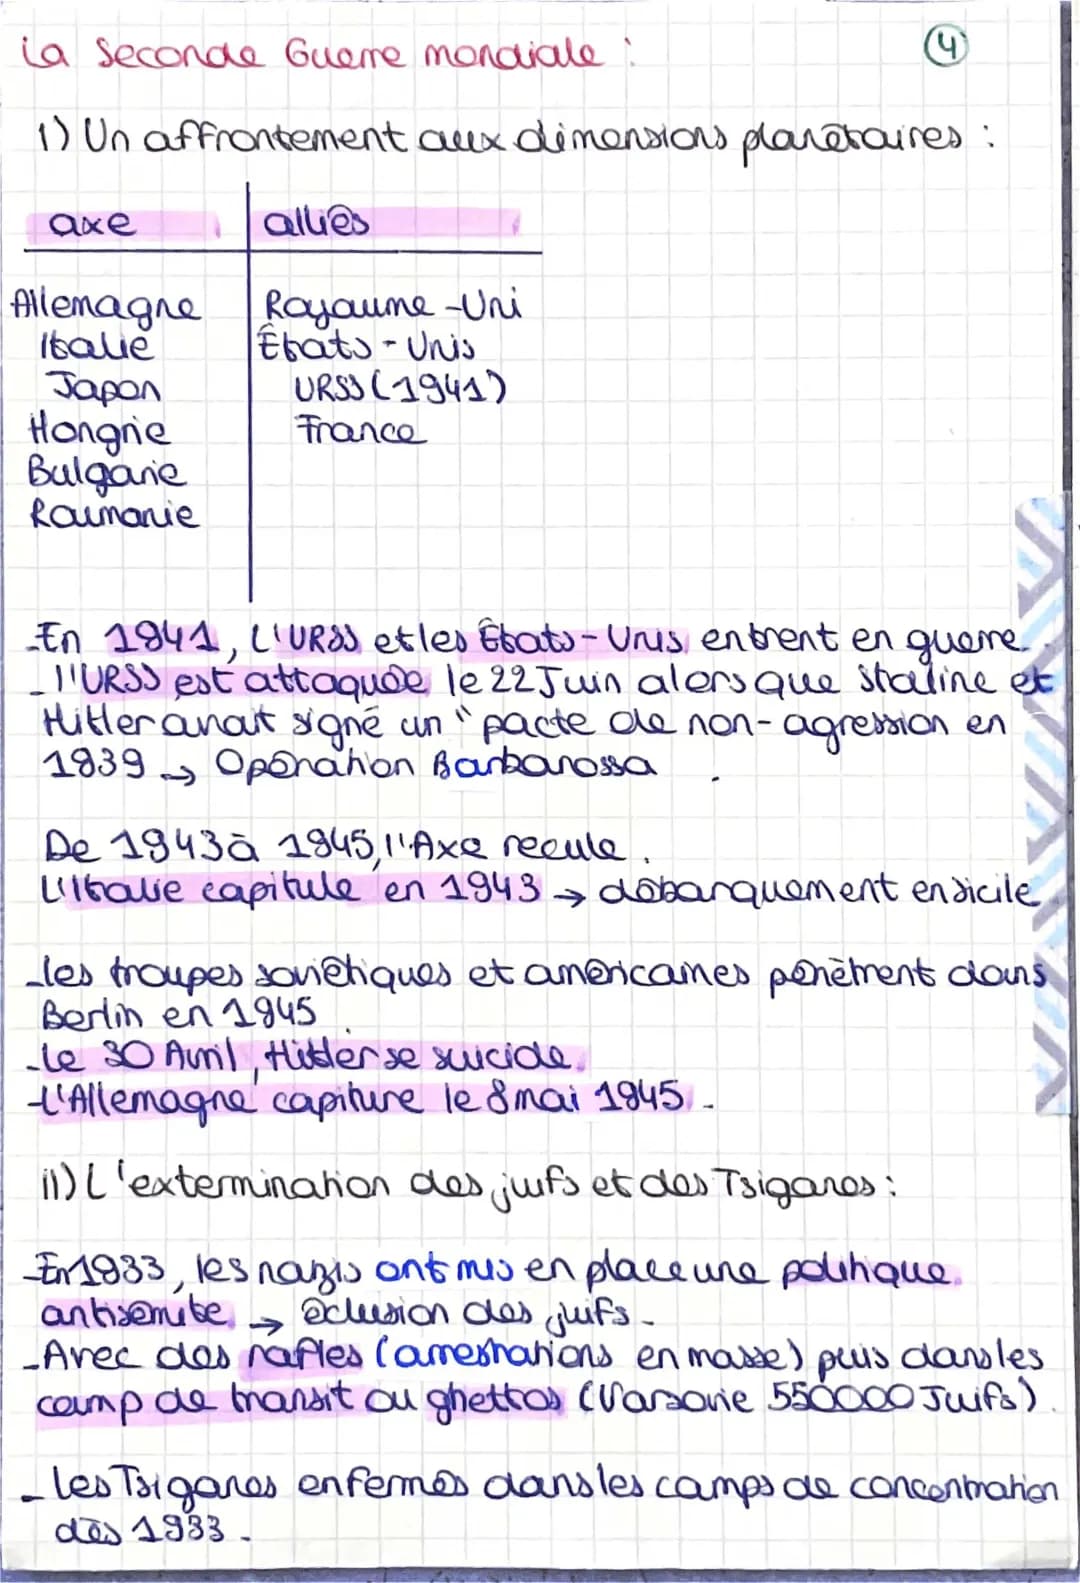 La Seconde Guerre mondiale :
4
1) Un affrontement aux dimensions planétaires :
axe alliés
Allemagne Royaume-Uni
Italie États-Unis
Japon URSS (1941)
Hongrie France
Bulgarie
Roumanie
-En 1941, L'URSS et les États-Unis entrent en guerre.
- l'URSS est attaquée le 22 Juin alors que Staline et
Hitler avait signé un "pacte de non-agression en
1939 → Opération Barbarossa
De 1943 à 1945, l'Axe recule.
L'Italie capitule en 1943 → débarquement en sicile
-les troupes soviétiques et américaines pénètrent dans
Berlin en 1945
-le 30 Avril, Hitler se suicide.
-L'Allemagne capiture le 8 mai 1945.
II) L'extermination des juifs et des Tsiganes :
-En 1933, les nazis ont mis en place une politique
antisémite. → éclusion des juifs.
-Avec des rafles (arrestations en masse) puis dans les
camp de transit ou ghettos (Varsovie 550000 Juifs).
- les Tsiganes enfermés dans les camps de concentration
dès 1933.